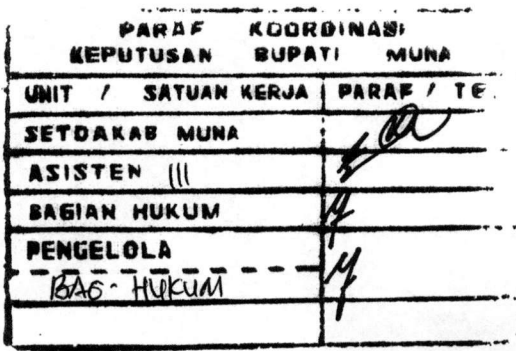 PARAF KOORDINASI
KEPUTUSAN BUPATI MUNA
UNIT / SATUAN KERJA PARAF / TE
SETDAKAB MUNA
ASISTEN III
BAGIAN HUKUM
PENGELOLA
BAG- HUKUM